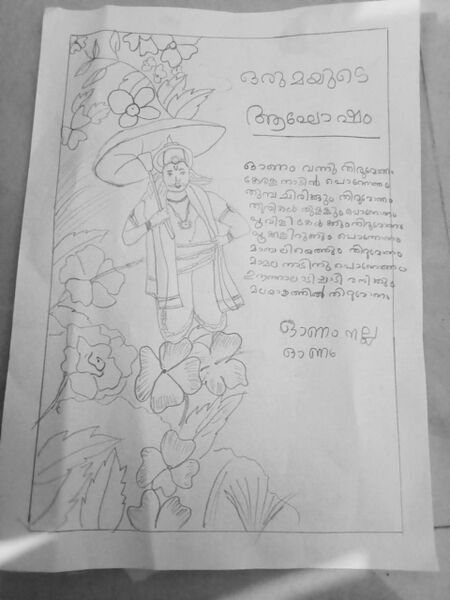 ഒരുമയുടെ
ആഘോഷം
ഓണം വന്നു തിരുവോണം
കേരള നാടിൻ പൊന്നോണം
തുമ്പ ചിരിക്കും തിരുവോണം
തുമ്പികൾ തുള്ളും പൊന്നോണം
പൂവിളി കേൾക്കും തിരുവോണം
പൂക്കളമിടും പൊന്നോണം
മാവേലിയെത്തും തിരുവോണം
മാമല നാടിനു പൊന്നോണം
തിരുവോണം
ഓണം നല്ല
ഓണം